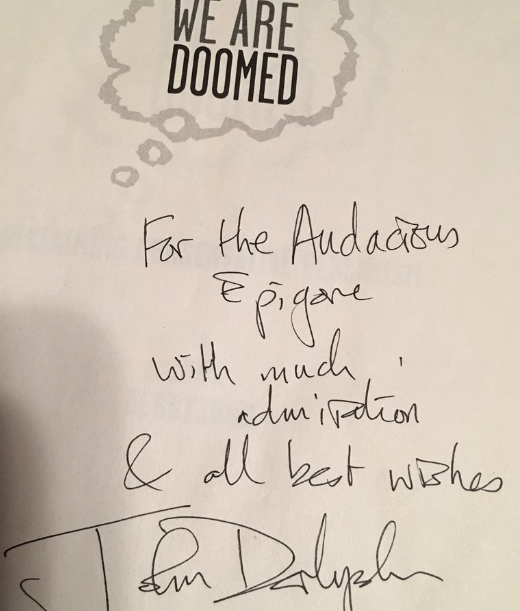 WE ARE
DOOMED
For the Audacious
Epigone
with much
admiration
& all best wishes
John Derbyshire